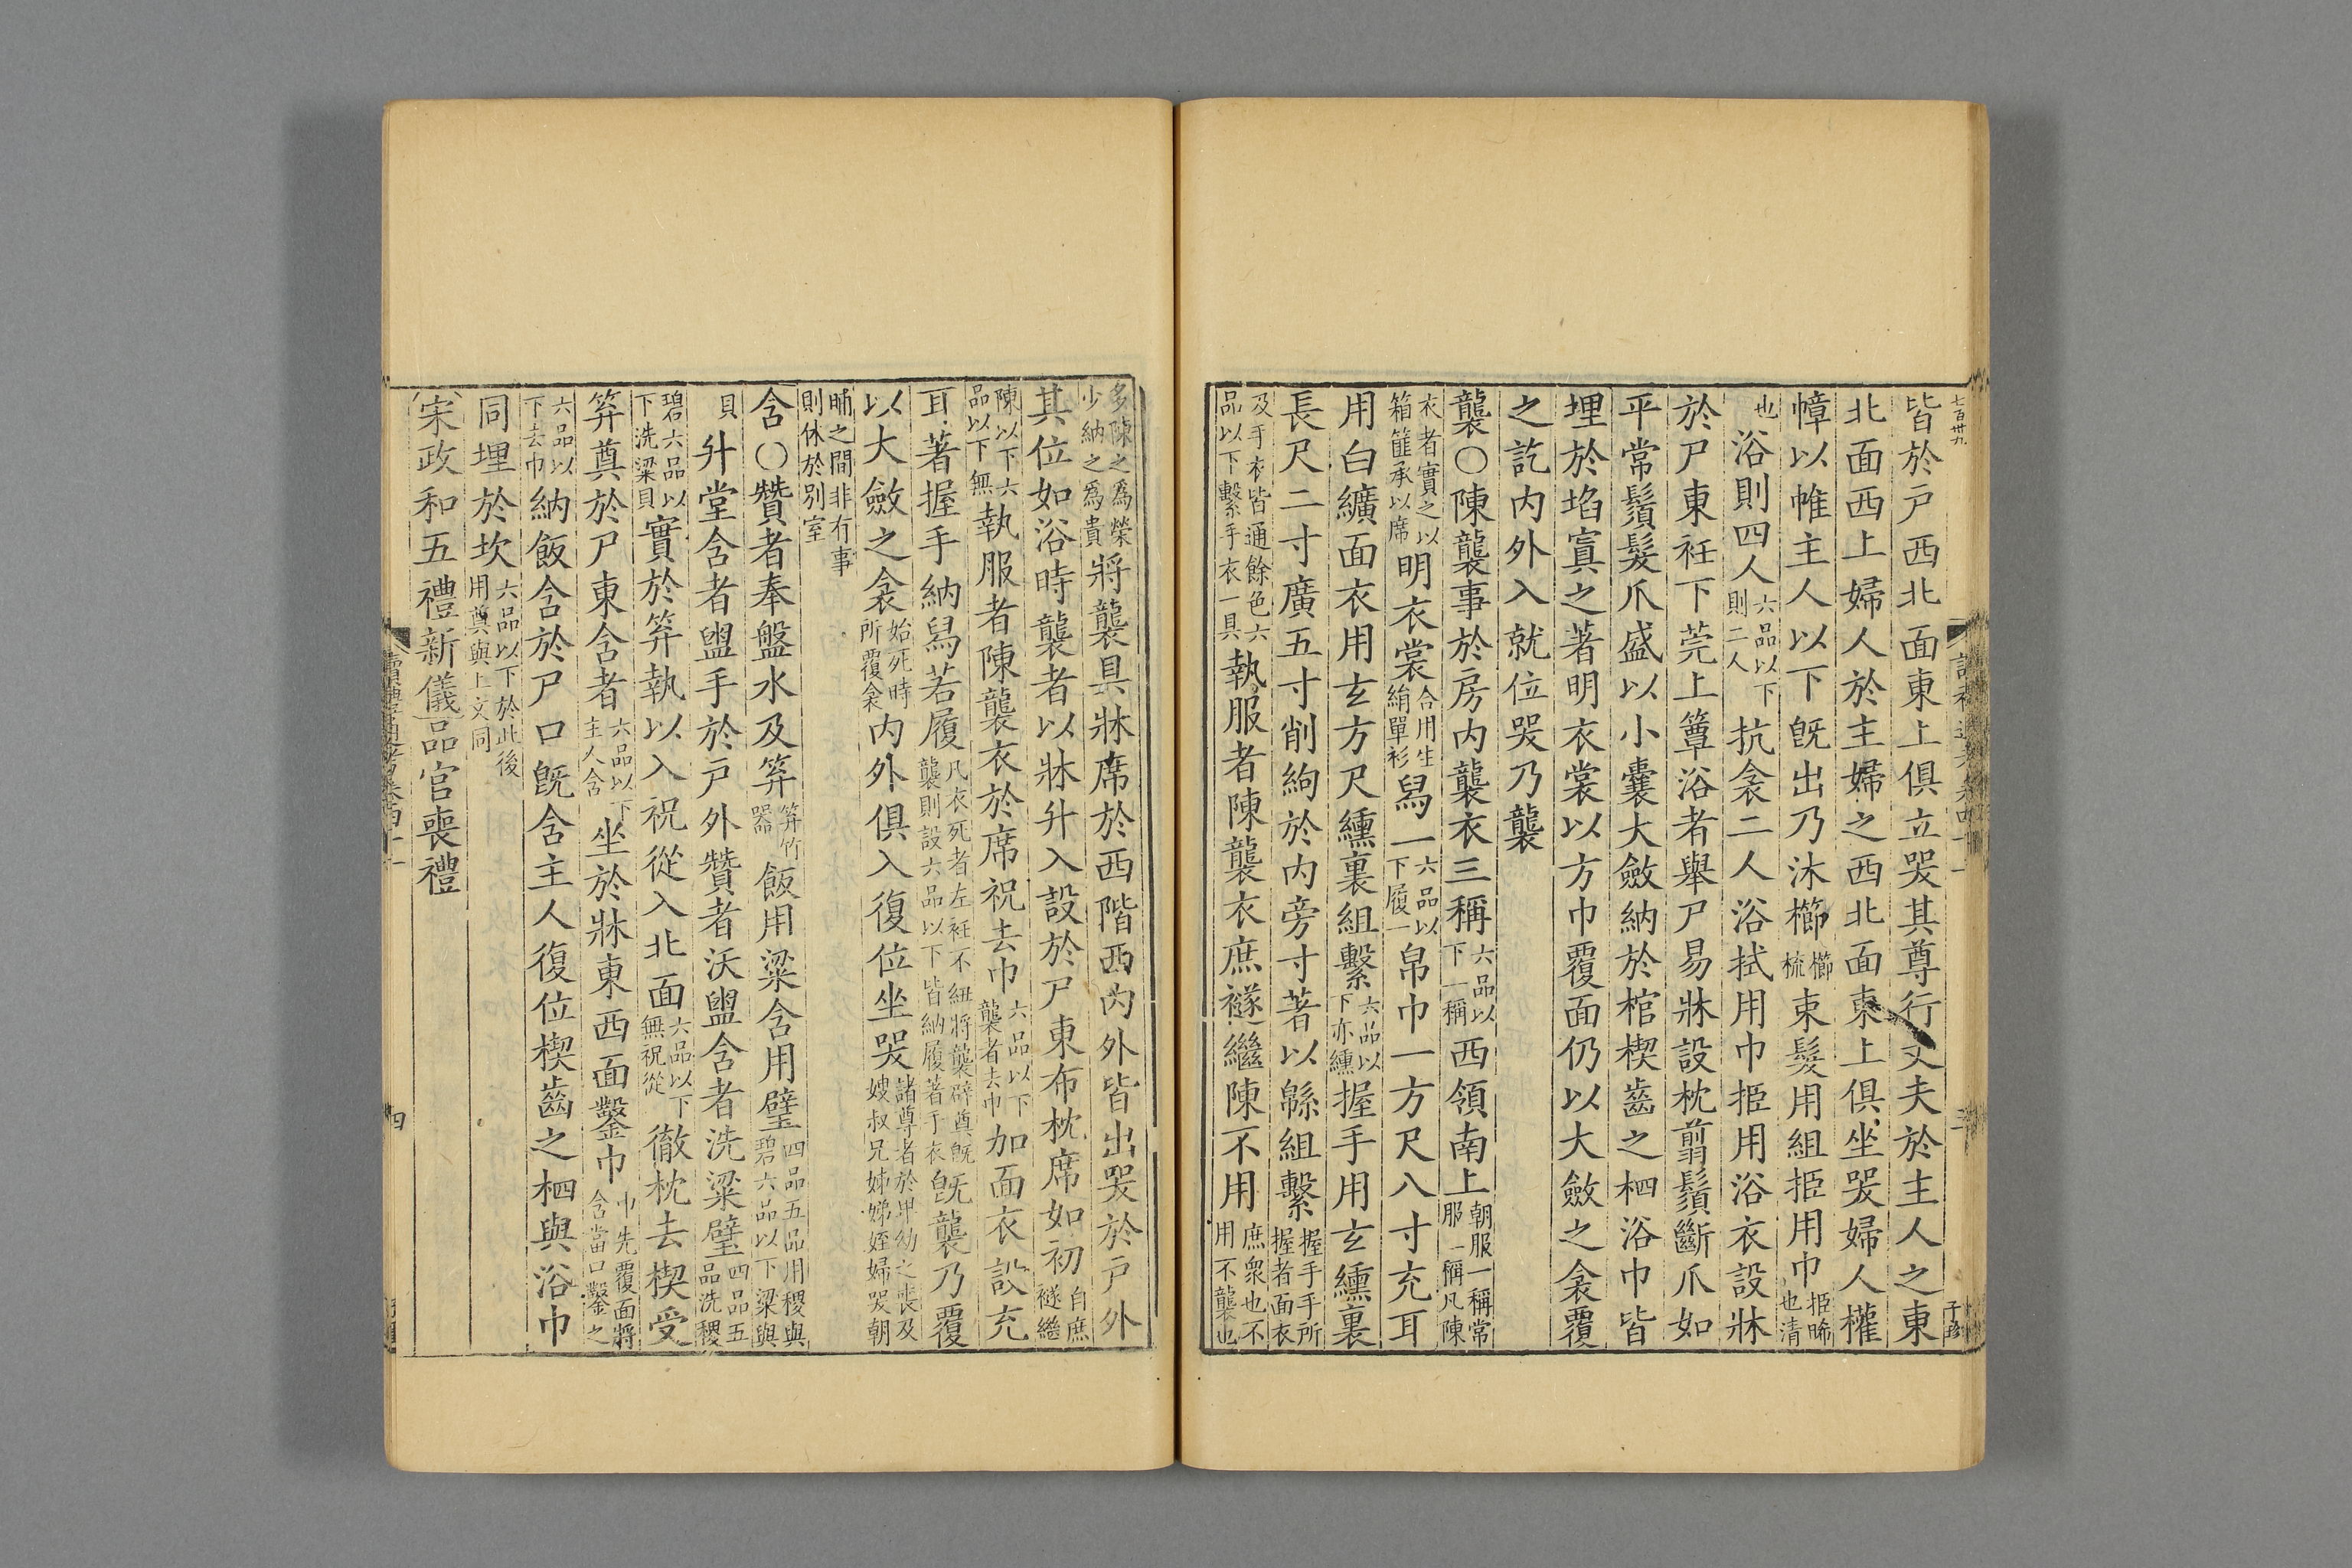 七百卅九
皆於戸西北面東上俱立哭其尊行丈夫於主人之東
北面西上婦人於主婦之西北面東上俱坐哭婦人權
幛以帷主人以下旣出乃沐櫛櫛梳束髮用組挋用巾挋晞也清
也浴則四人六品以下則二人抗衾二人浴拭用巾挋用浴衣設牀
於尸東衽下莞上簟浴者舉尸易牀設枕翦鬚斷爪如
平常鬚髮爪盛以小囊大斂納於棺楔齒之柶浴巾皆
埋於埳寘之著明衣裳以方巾覆面仍以大斂之衾覆
之訖内外入就位哭乃襲
襲○陳襲事於房内襲衣三稱六品以下一稱西領南上朝服一稱常服一稱凡陳
衣者實之以箱篚承以席明衣裳合用生絹單衫舄一六品以下履一帛巾一方尺八寸充耳
用白纊面衣用玄方尺纁裏組繫六品以下亦纁握手用玄纁裏
長尺二寸廣五寸削絇於内旁寸著以緜組繫握手手所握者面衣
及手衣皆通餘色六品以下繫手衣一具執服者陳襲衣庶襚繼陳不用庶衆也不用不襲也
子珍
多陳之爲榮少納之爲貴將襲具牀席於西階西内外皆出哭於戸外
其位如浴時襲者以牀升入設於尸東布枕席如初自庶襚繼
陳以下六品以下無執服者陳襲衣於席祝去巾六品以下襲者去巾加面衣設充
耳著握手納舄若履凡衣死者左衽不紐將襲辟奠旣襲則設六品以下皆納履著手衣旣襲乃覆
以大斂之衾始死時所覆衾内外俱入復位坐哭諸尊者於卑幼之喪及嫂叔兄姊娣姪婦哭朝
晡之間非有事則休於別室
含○贊者奉盤水及笲笲竹器飯用粱含用璧四品五品用稷與碧六品以下粱與
貝升堂含者盥手於戸外贊者沃盥含者洗粱璧四品五品洗稷
碧六品以下洗粱貝實於笲執以入祝從入北面六品以下無祝從徹枕去楔受
笲奠於尸東含者六品以下主人含坐於牀東西面鑿巾巾先覆面將含當口鑿之
六品以下去巾納飯含於尸口旣含主人復位楔齒之柶與浴巾
同埋於坎六品以下於此後用奠與上文同
宋政和五禮新儀品官喪禮
讀禮通考卷四十一
四